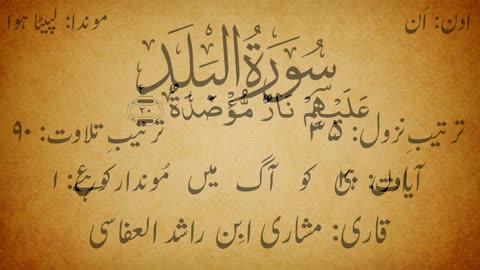 اون: اُن موندا: لپیٹا ہوا
سُورَةُ البَلَد
عَلَيْهِمْ نَارٌ مُّؤْصَدَةٌ ﴿٢٠﴾
ترتیبِ نزول: ۳۵ ترتیبِ تلاوت: ۹۰
آیات: ہی کو آگ میں مُوندا رکوع: ۱
قاری: مشاری ابنِ راشد العفاسی